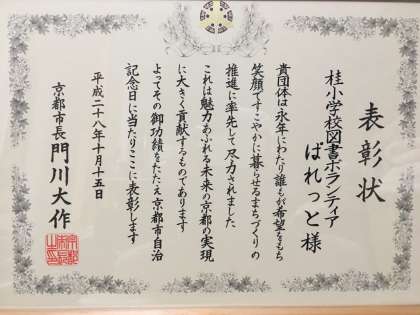 表彰状
桂小学校図書ボランティア
ぱれっと様
貴団体は永年にわたり誰もが希望をもち
笑顔ですこやかに暮らせるまちづくりの
推進に率先して尽力されました
これは魅力あふれる未来の京都の実現
に大きく貢献するものであります
よってその御功績をたたえ京都市自治
記念日に当たりここに表彰します
平成二十八年十月十五日
京都市長 門川大作